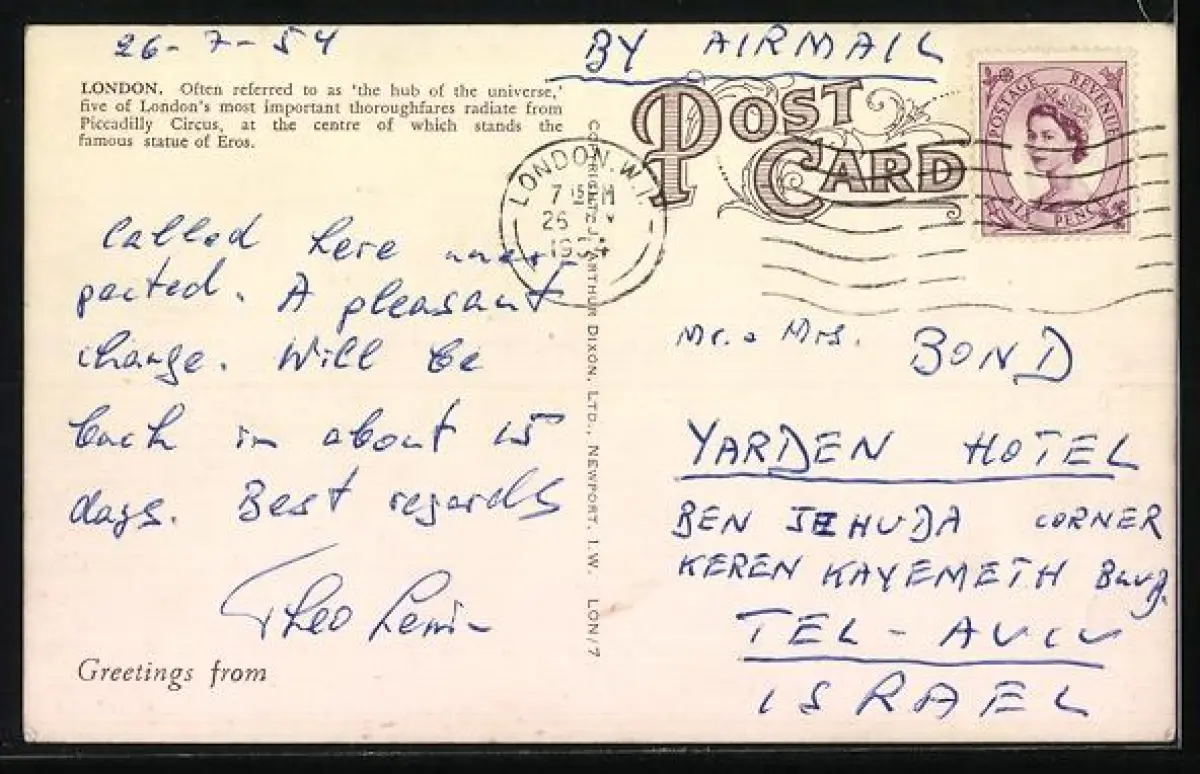 26-7-54
BY AIRMAIL
LONDON. Often referred to as 'the hub of the universe,'
five of London's most important thoroughfares radiate from
Piccadilly Circus, at the centre of which stands the
famous statue of Eros.
POST CARD
POSTAGE REVENUE
SIX PENCE
LONDON. W.1.
1954
called here unex-
pected. A pleasant
change. Will be
back in about 15
days. Best regards
Theo
Greetings from
COPYRIGHT J. ARTHUR DIXON, LTD., NEWPORT, I.W. LON/7
Mr. & Mrs. BOND
YARDEN HOTEL
BEN JEHUDA CORNER
KEREN KAYEMETH Bvd.
TEL-AVIV
ISRAEL